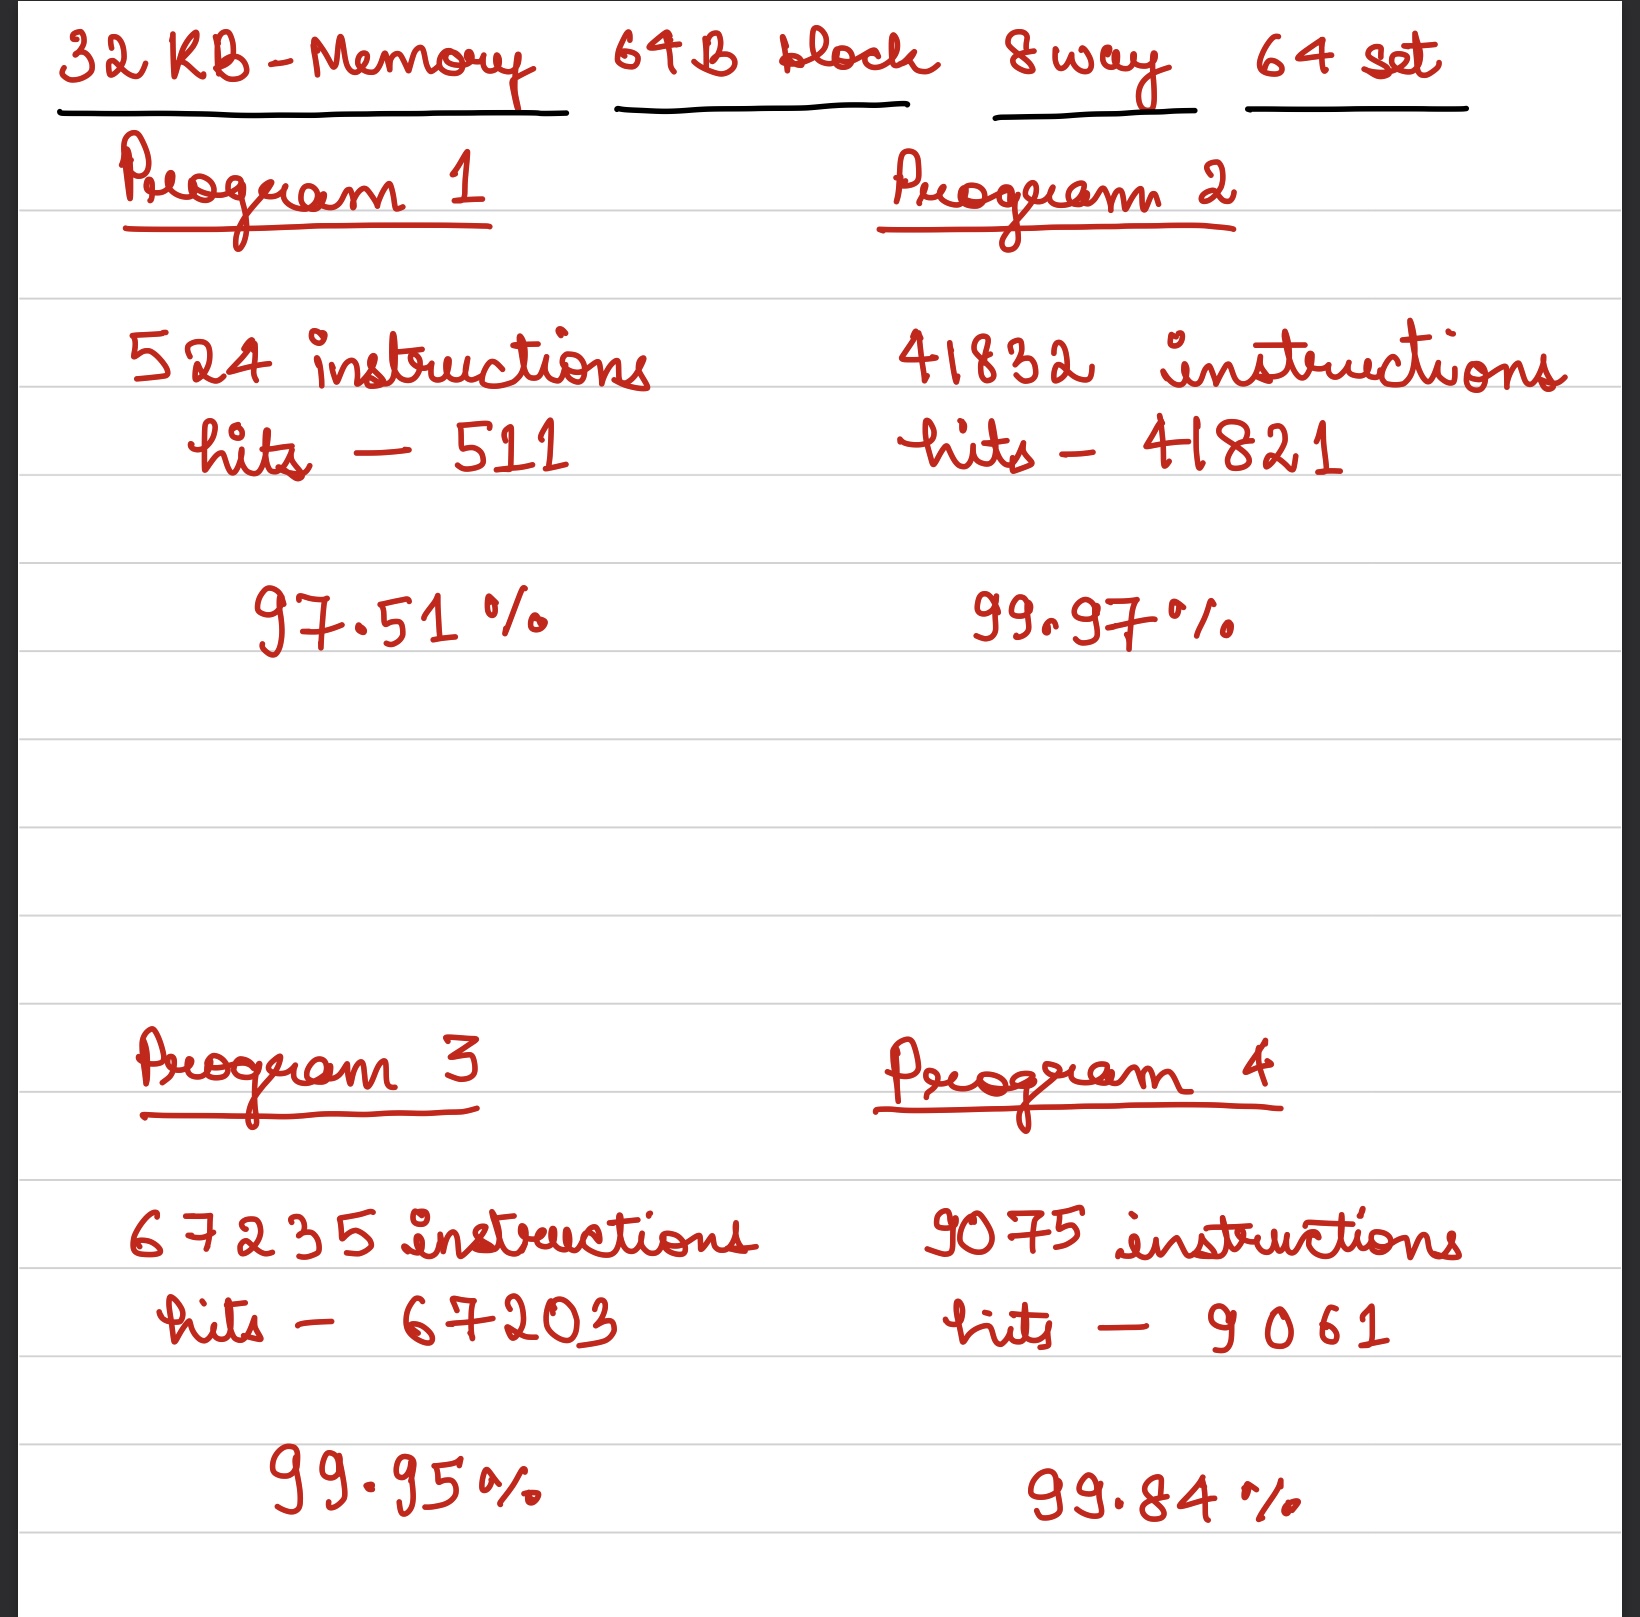 32 KB - Memory 64B block 8 way 64 set
Program 1
524 instructions
hits - 511
97.51 %
Program 2
41832 instructions
hits - 41821
99.97 %
Program 3
67235 instructions
hits - 67203
99.95 %
Program 4
9075 instructions
hits - 9061
99.84 %